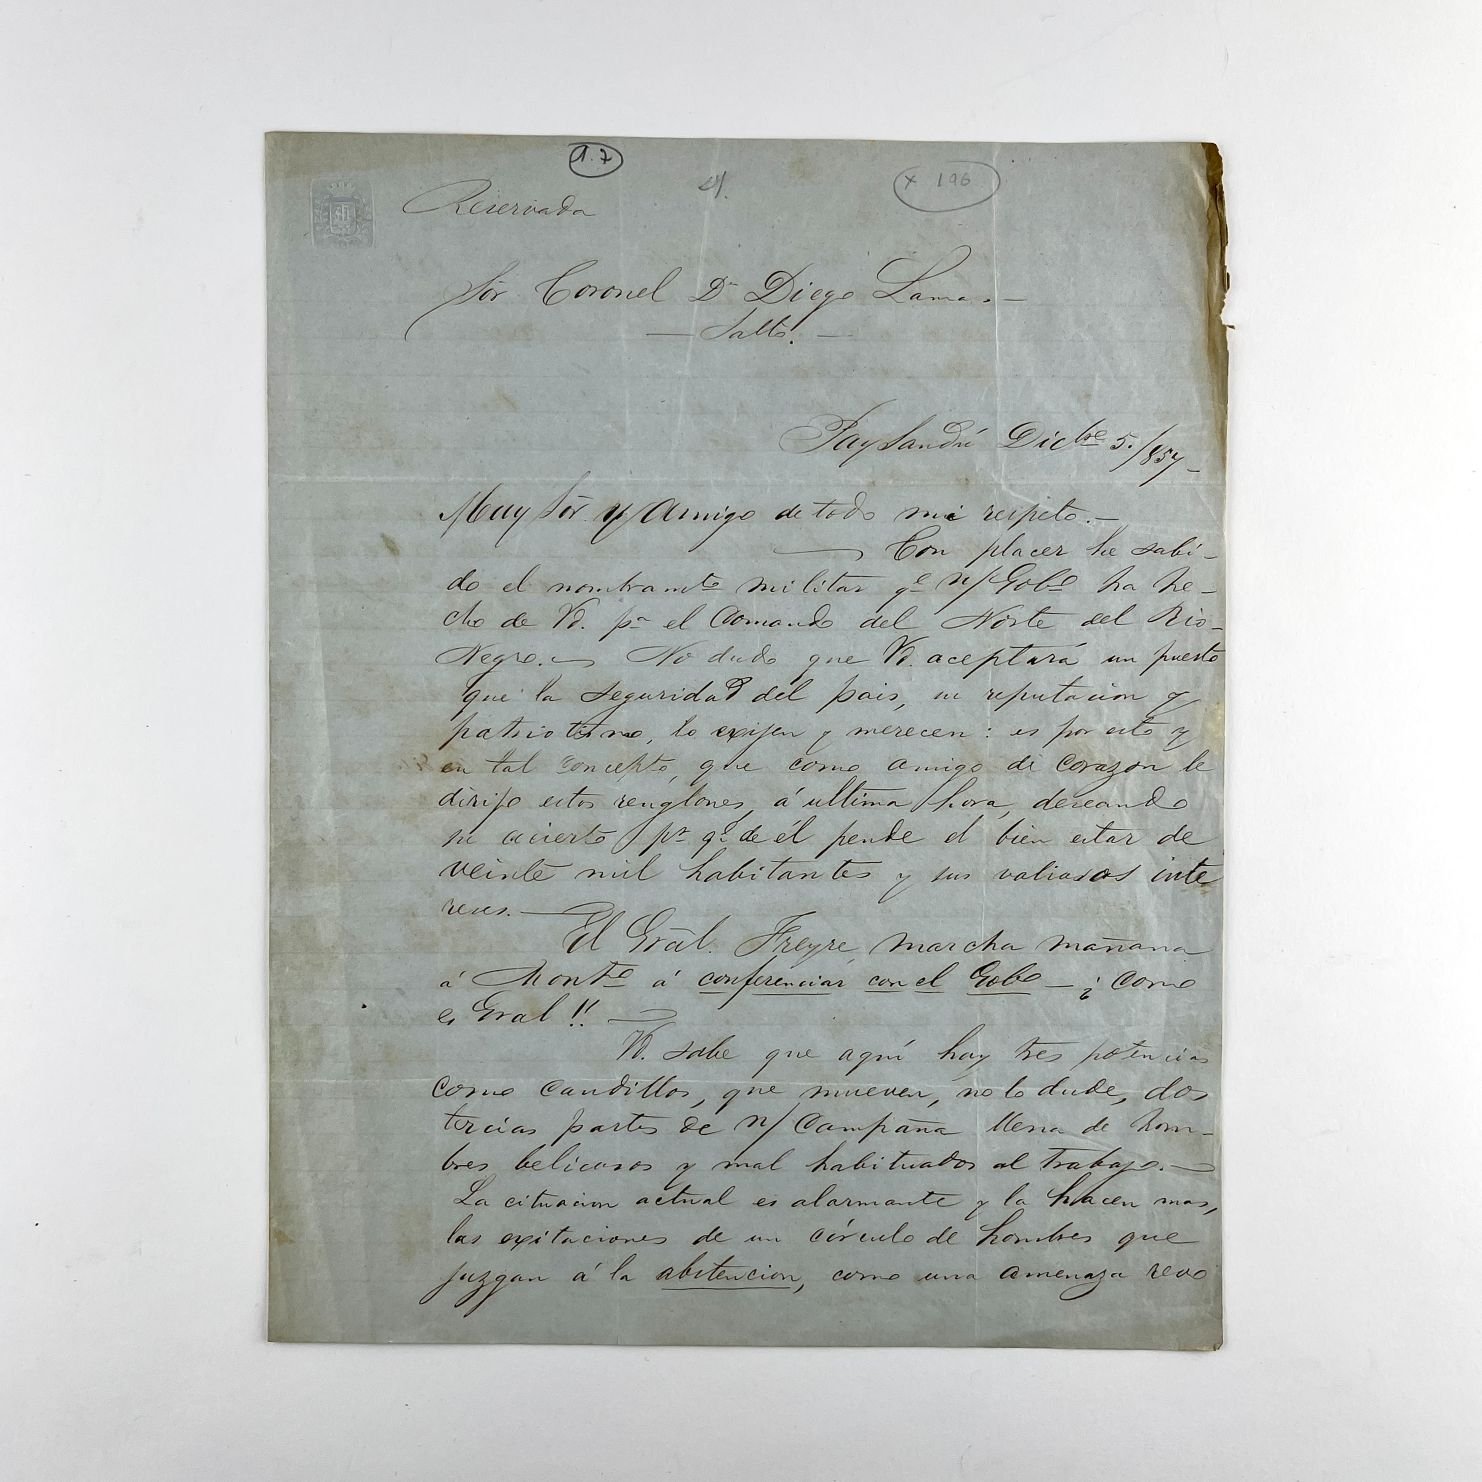 1.7
x 196
Reservada
Sōr. Coronel Dn Diego Lamas—
— Salto. —
Paysandú Dicbre 5./857—
Muy Sōr. y Amigo de todo mi respeto.—
Con placer he sabi-
do el nombramto militar qe n/ Gobo ha he-
cho de Vd. pa el Comando del Norte del Rio-
Negro.— No dudo que Vd. aceptará un puesto
que la seguridad del pais, su reputacion y
patriotismo, lo exijen y merecen: es por esto y
en tal concepto, que como amigo de corazon le
dirijo estos renglones, á ultima hora, deseando
su acierto pr qe de él pende el bien estar de
veinte mil habitantes y sus valiosos inte
reses.—
El Grāl. Freyre, marcha mañana
á Montо á conferenciar con el Gobo — ¿ Como
es Gral!! —
Vd. sabe que aquí hay tres potencias
como Caudillos, que mueven, no lo dude, dos
tercias partes de n/ Campaña llena de hom-
bres belicosos y mal habituados al trabajo.—
La cituacion actual es alarmante y la hacen mas,
las exitaciones de un círculo de hombres que
juzgan á la abstencion, como una amenaza revo